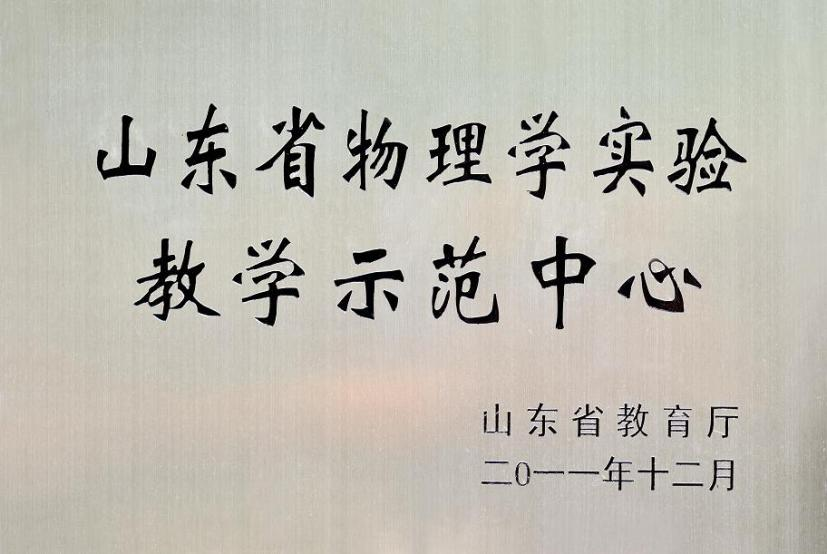 山东省物理学实验
教学示范中心
山东省教育厅
二0一一年十二月